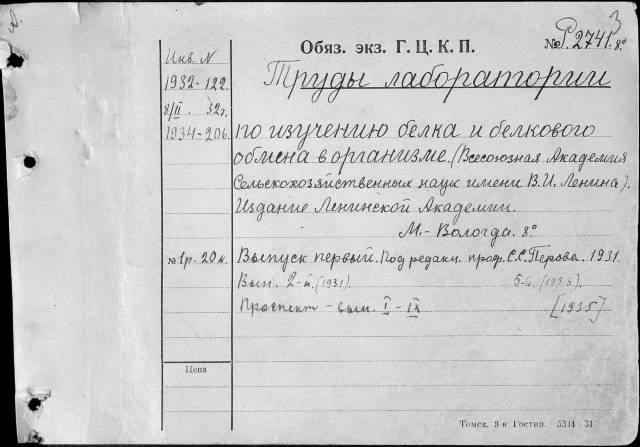 3
Обяз. экз. Г. Ц. К. П.
№ Р.2741. 8°
Инв. N
1932-122.
8/II. 32г.
1934-206.
Труды лаборатории
по изучению белка и белкового
обмена в организме. (Всесоюзная Академия
Сельскохозяйственных наук имени В.И. Ленина).
Издание Ленинской Академии.
М.- Вологда. 8°
№ 1р. 20к.
Выпуск первый. Под редакц. проф. С.С. Перова. 1931.
Вып. 2-й. (1931). 5-й. (1933).
Проспект - вып. I - IX [1935]
Цена
Томск. 3-я Гостип. 5314-31